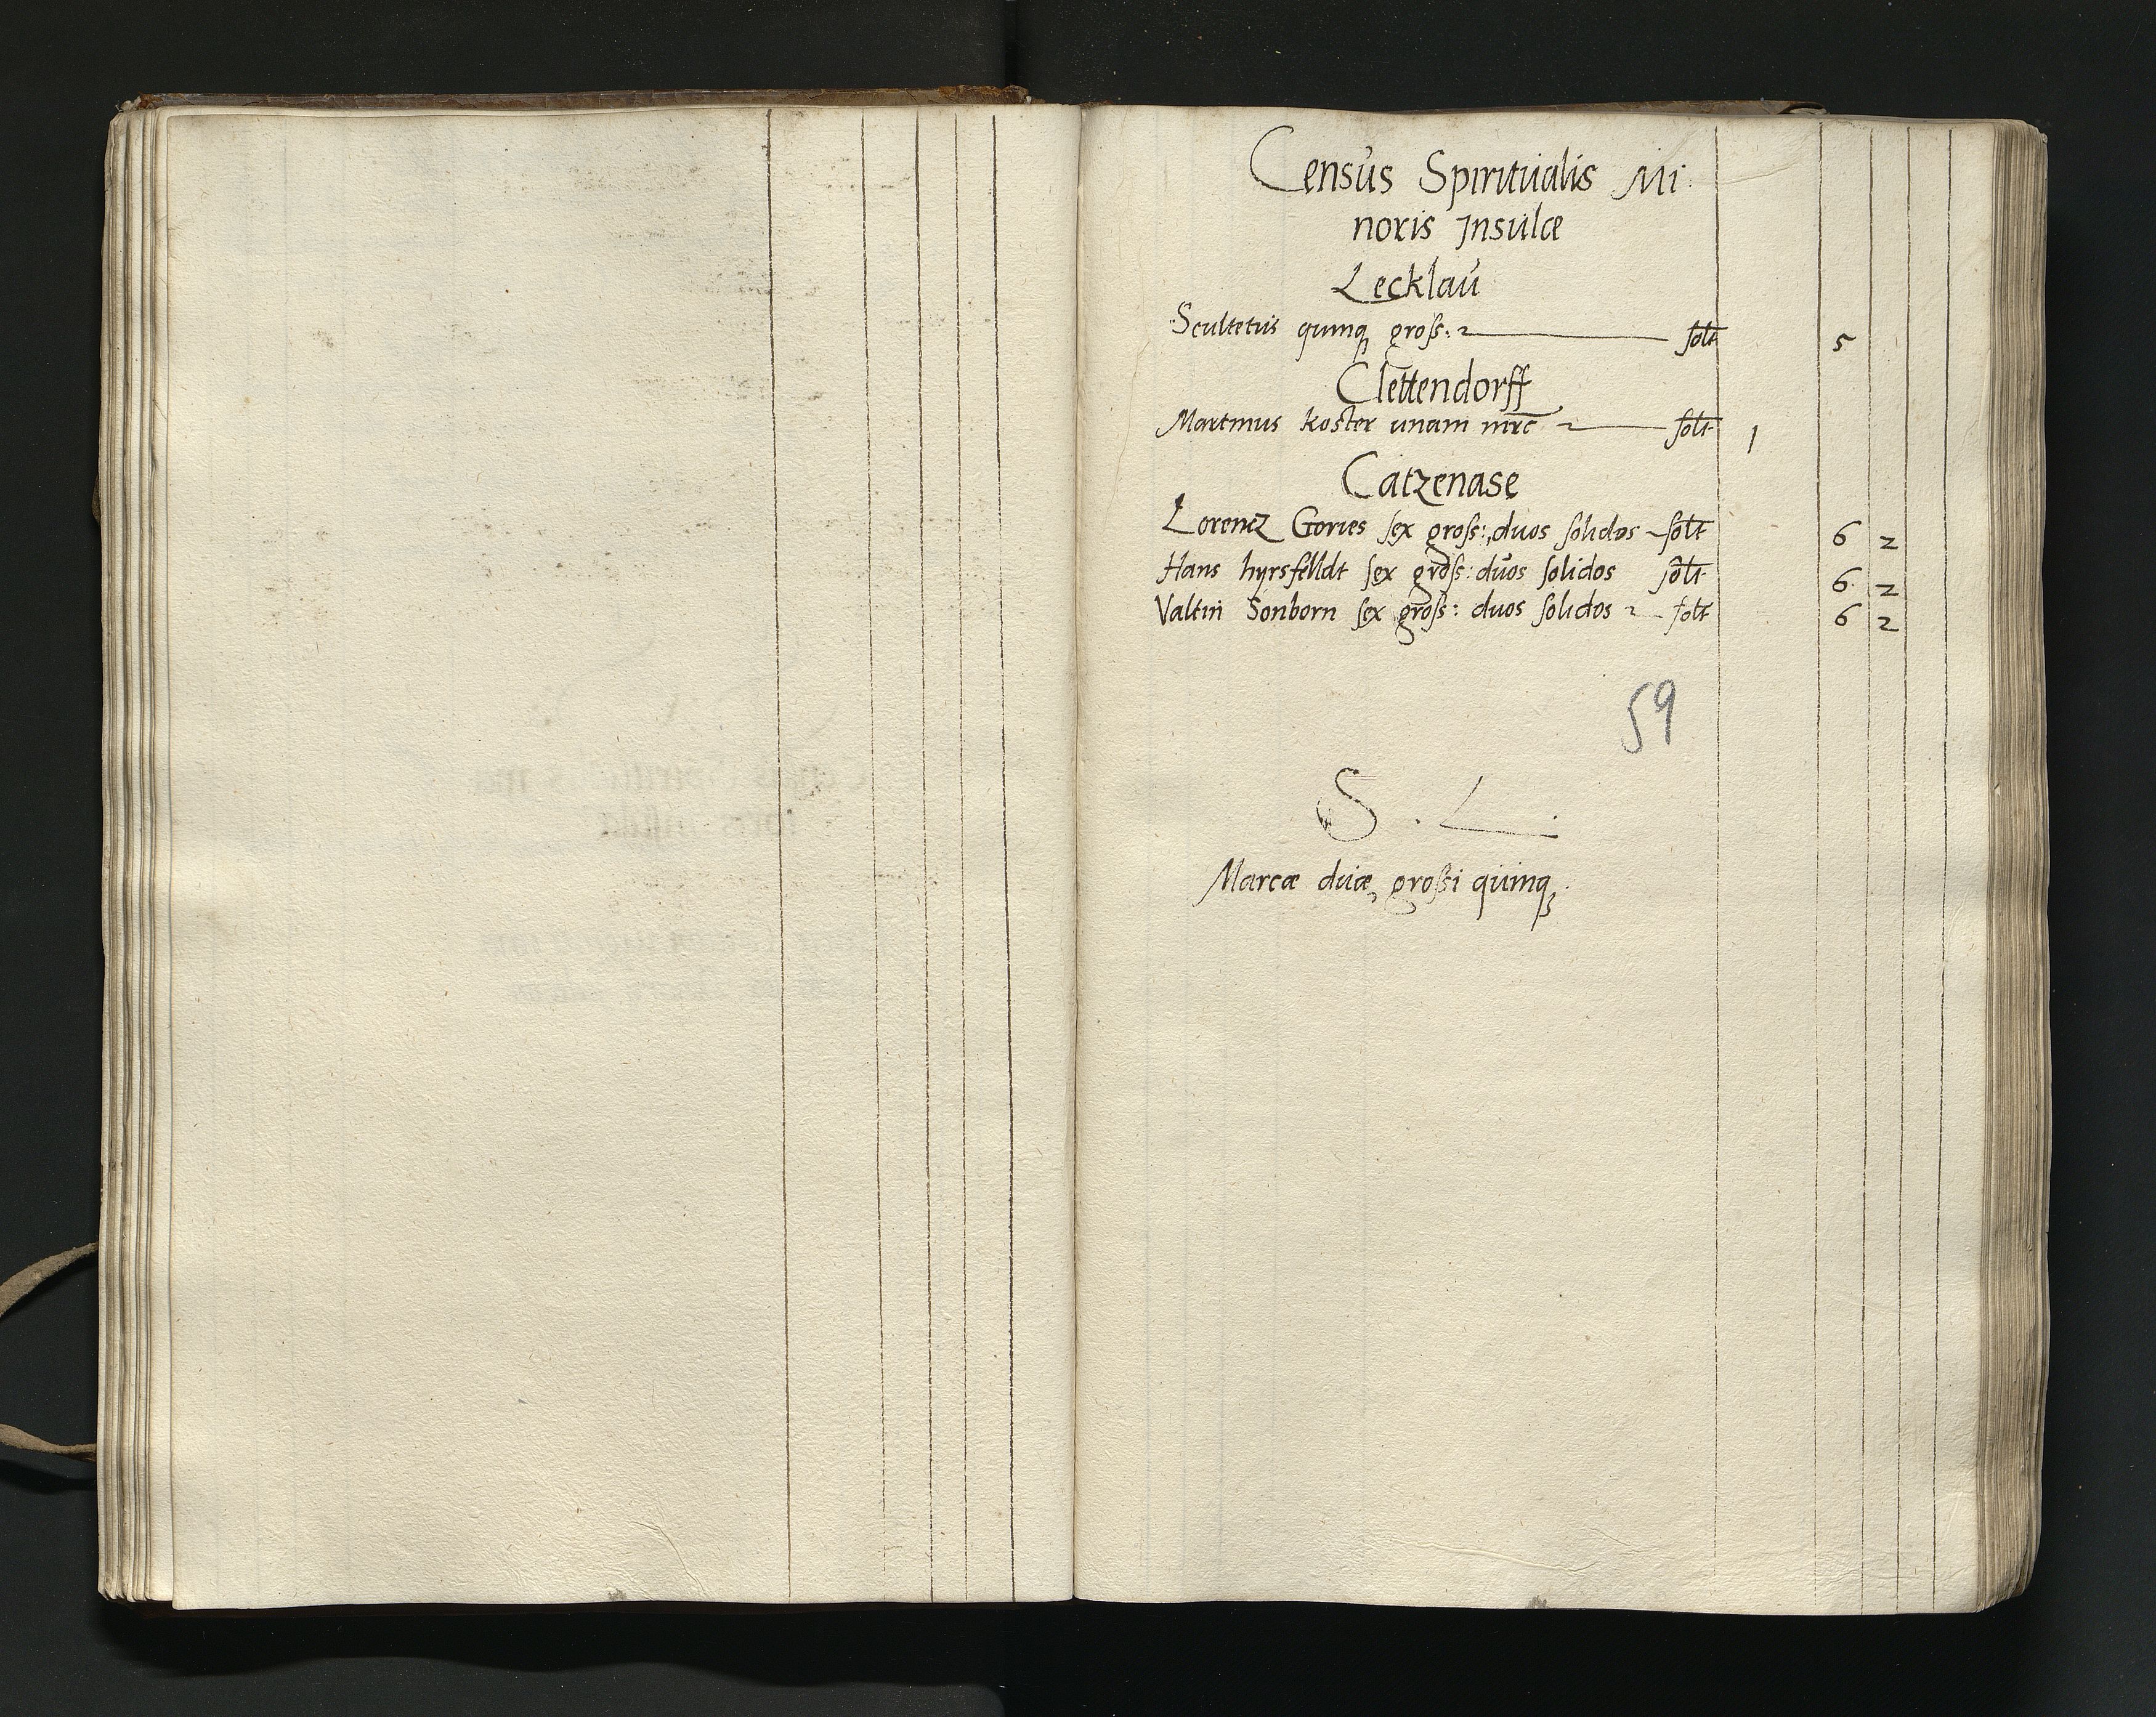 Census Spiritualis Mi:
noris Insulæ
Lecklaŭ
Scultetus quinq gross: solt 5
Clettendorff
Martinus koster unam mrc solt 1
Catzenase
Lorencz Gories sex gross: duos solidos solt 6 2
Hans hyrsfelldt sex gross: duos solidos solt 6 2
Valtin Sonborn sex gross: duos solidos solt 6 2
59
S. L.
Marcæ duæ, grossi quinq